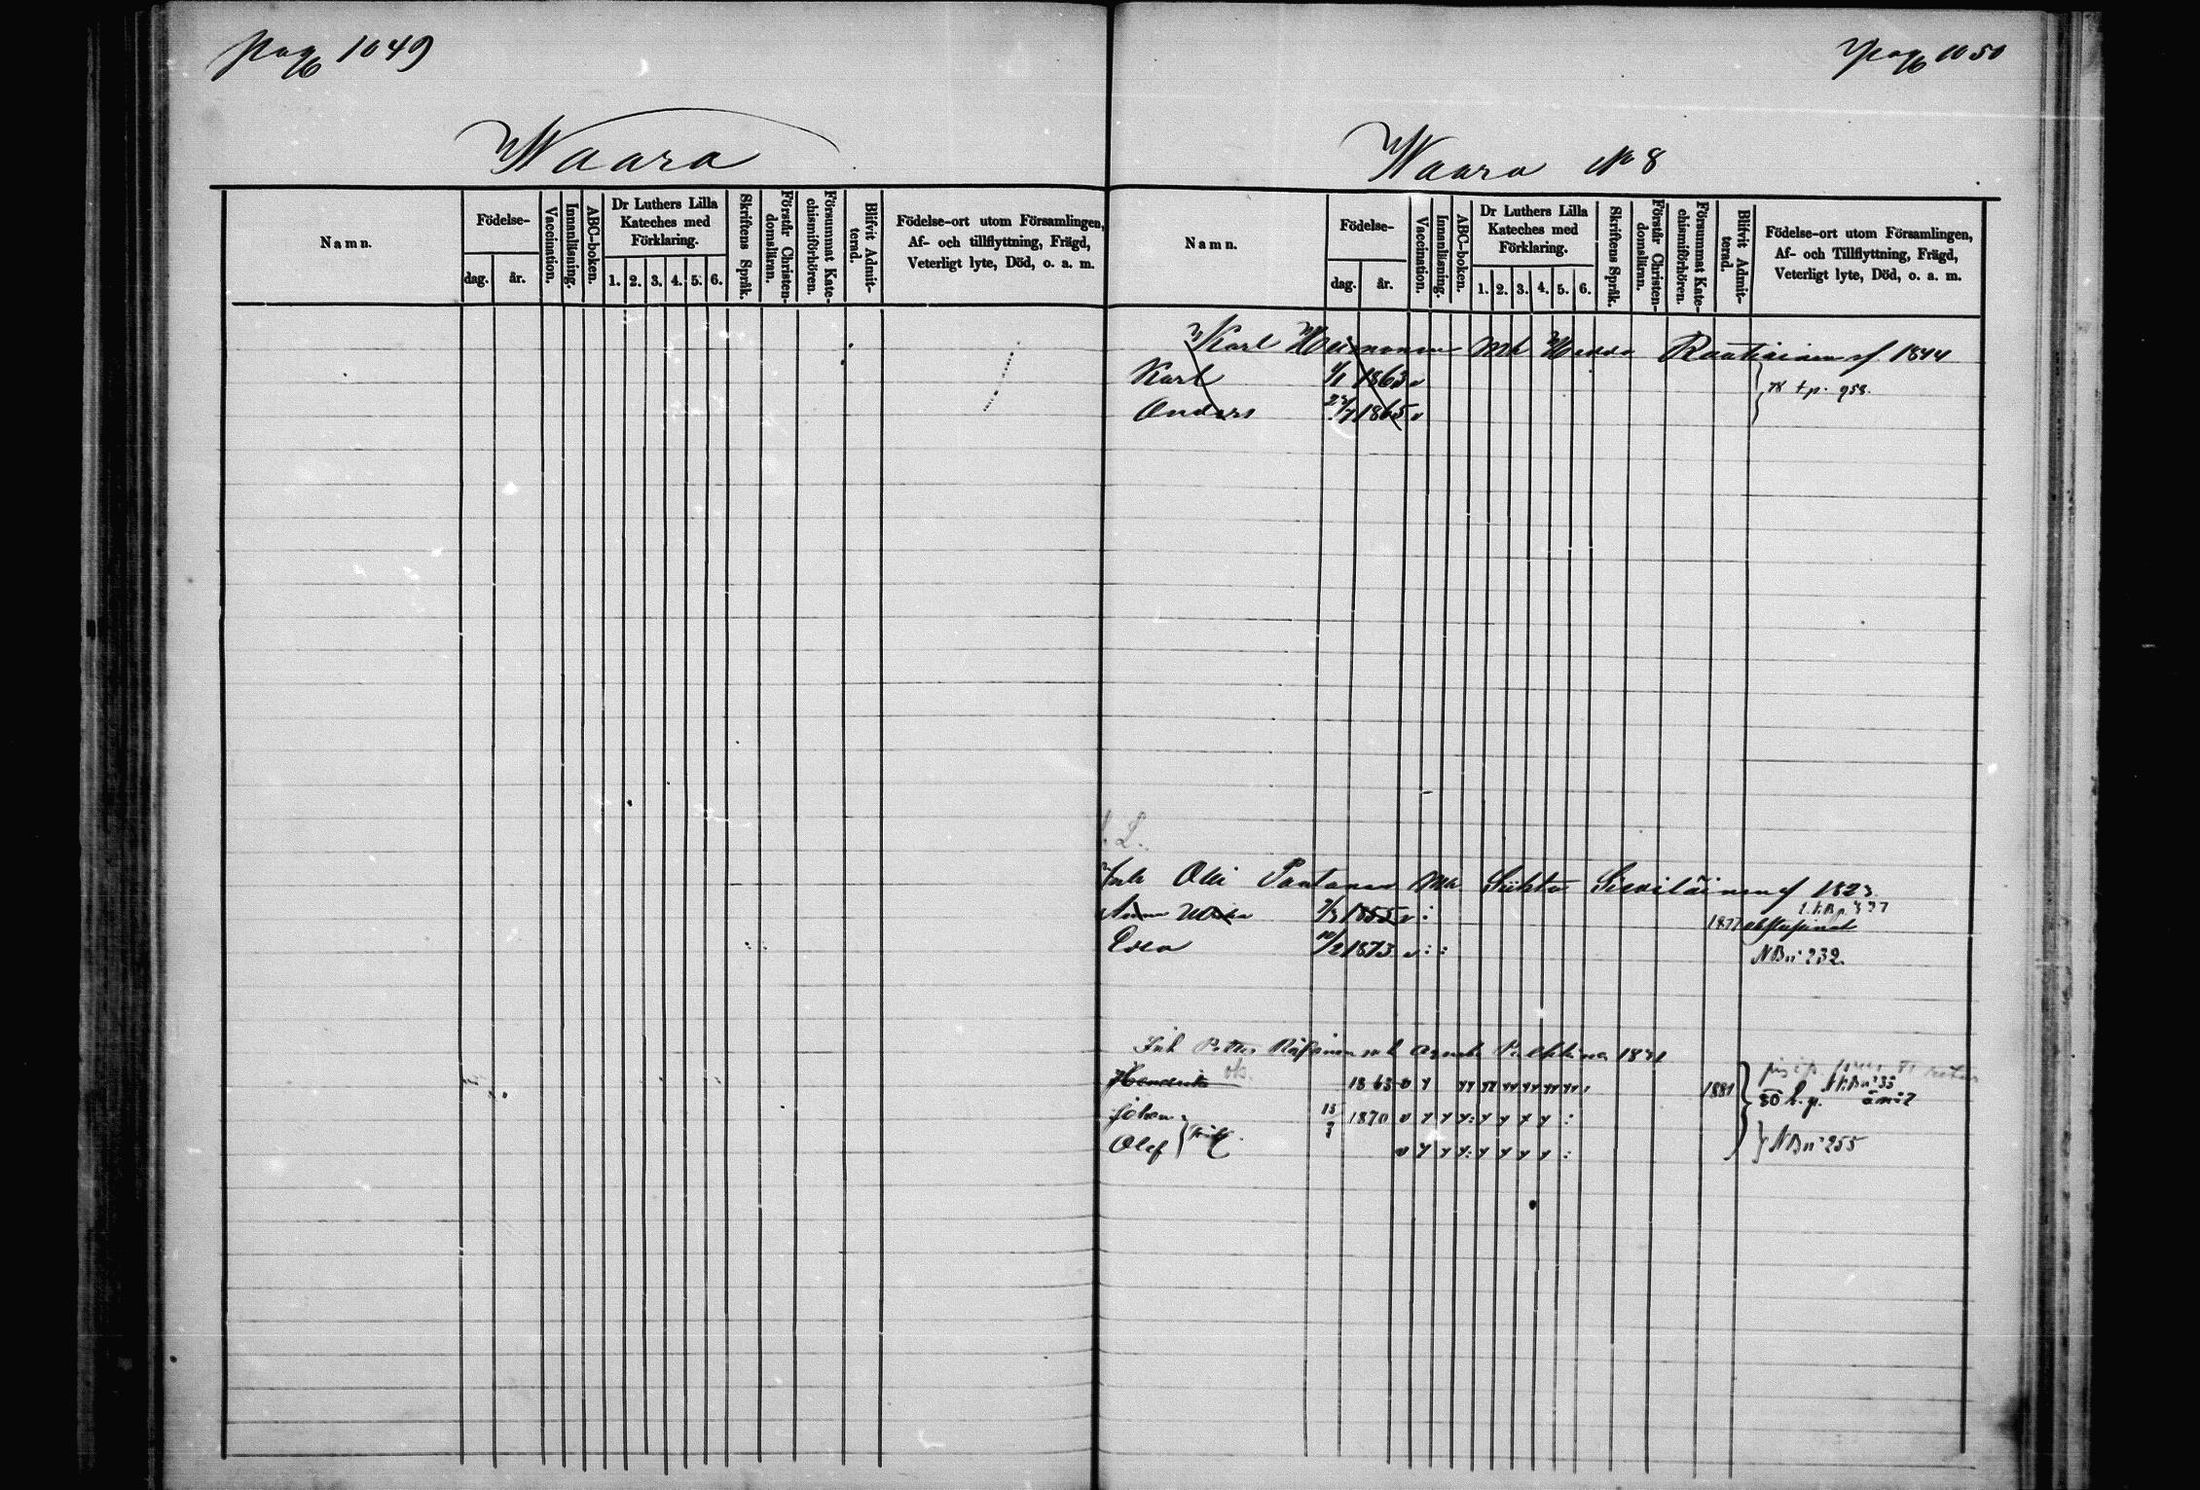 pag 1049
Waara
Namn.
Födelse-
dag.
år.
Vaccination.
Innanläsning.
ABC-boken.
Dr Luthers Lilla
Kateches med
Förklaring.
1. 2. 3. 4. 5. 6.
Skriftens Språk.
Förstår Christen-
domsläran.
Försummat Kate-
chismiförhören.
Blifvit Admit-
terad.
Födelse-ort utom Församlingen,
Af- och tillflyttning, Frägd,
Veterligt lyte, Död, o. a. m.
pag 1050
Waara No 8
Namn.
Födelse-
dag.
år.
Vaccination.
Innanläsning.
ABC-boken.
Dr Luthers Lilla
Kateches med
Förklaring.
1. 2. 3. 4. 5. 6.
Skriftens Språk.
Förstår Christen-
domsläran.
Försummat Kate-
chismiförhören.
Blifvit Admit-
terad.
Födelse-ort utom Församlingen,
Af- och Tillflyttning, Frägd,
Veterligt lyte, Död, o. a. m.
Karl Heinonen Mh Hedda 1844
Karl 1863 v p. 958.
Anders 1865 v
Inh Olli Mh 1823
Anna 1855 v 1877
Eva 10/2 1873 v NB n 232.
Inh Petter 1831
1863 v 1881
Johan 1870 v
Olef v NB n 255